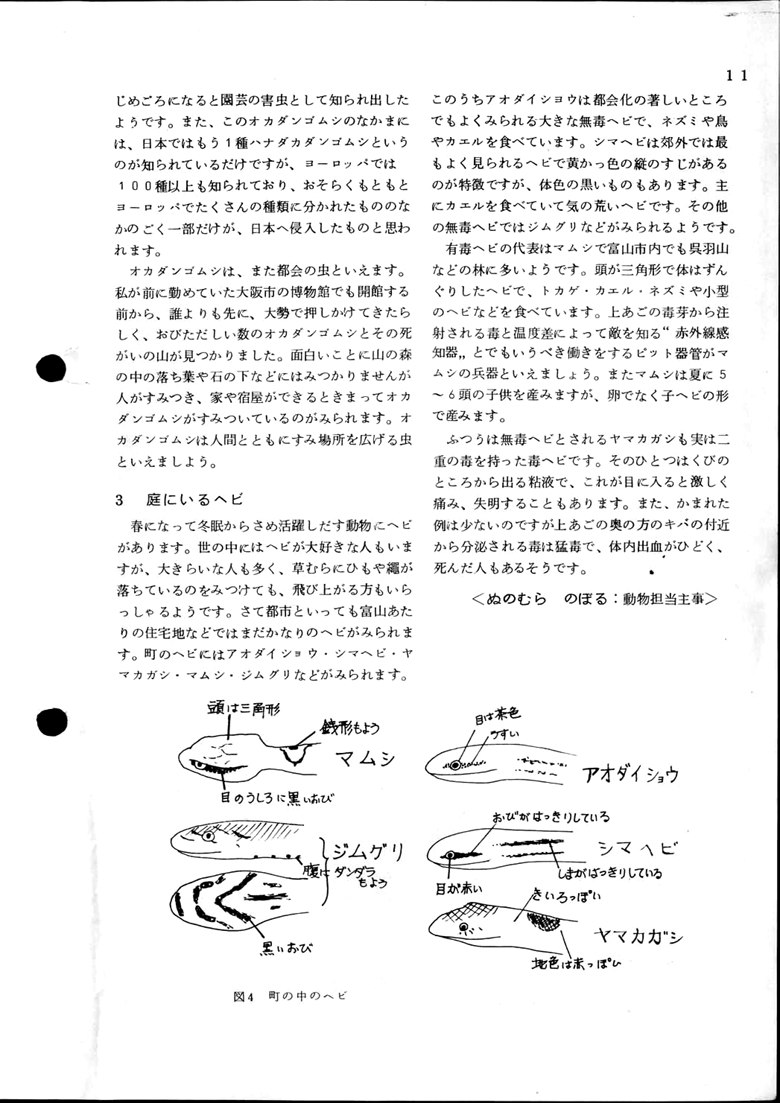 11
じめごろになると園芸の害虫として知られ出した
ようです。また、このオカダンゴムシのなかまに
は、日本ではもう1種ハナダカダンゴムシという
のが知られているだけですが、ヨーロッパでは
100種以上も知られており、おそらくもともと
ヨーロッパでたくさんの種類に分かれたもののな
かのごく一部だけが、日本へ侵入したものと思わ
れます。
オカダンゴムシは、また都会の虫といえます。
私が前に勤めていた大阪市の博物館でも開館する
前から、誰よりも先に、大勢で押しかけてきたら
しく、おびただしい数のオカダンゴムシとその死
がいの山が見つかりました。面白いことに山の森
の中の落ち葉や石の下などにはみつかりませんが
人がすみつき、家や宿屋ができるときまってオカ
ダンゴムシがすみついているのがみられます。オ
カダンゴムシは人間とともにすみ場所を広げる虫
といえましよう。
3 庭にいるヘビ
春になって冬眠からさめ活躍しだす動物にヘビ
があります。世の中にはヘビが大好きな人もいま
すが、大きらいな人も多く、草むらにひもや縄が
落ちているのをみつけても、飛び上がる方もいら
っしゃるようです。さて都市といっても富山あた
りの住宅地などではまだかなりのヘビがみられま
す。町のヘビにはアオダイショウ・シマヘビ・ヤ
マカガシ・マムシ・ジムグリなどがみられます。
このうちアオダイショウは都会化の著しいところ
でもよくみられる大きな無毒ヘビで、ネズミや鳥
やカエルを食べています。シマヘビは郊外では最
もよく見られるヘビで黄かっ色の縦のすじがある
のが特徴ですが、体色の黒いものもあります。主
にカエルを食べていて気の荒いヘビです。その他
の無毒ヘビではジムグリなどがみられるようです。
有毒ヘビの代表はマムシで富山市内でも呉羽山
などの林に多いようです。頭が三角形で体はずん
ぐりしたヘビで、トカゲ・カエル・ネズミや小型
のヘビなどを食べています。上あごの毒芽から注
射される毒と温度差によって敵を知る“赤外線感
知器„とでもいうべき働きをするピット器管がマ
ムシの兵器といえましょう。またマムシは夏に5
～6頭の子供を産みますが、卵でなく子ヘビの形
で産みます。
ふつうは無毒ヘビとされるヤマカガシも実は二
重の毒を持った毒ヘビです。そのひとつはくびの
ところから出る粘液で、これが目に入ると激しく
痛み、失明することもあります。また、かまれた
例は少ないのですが上あごの奥の方のキバの付近
から分泌される毒は猛毒で、体内出血がひどく、
死んだ人もあるそうです。
＜ぬのむら のぼる：動物担当主事＞
頭は三角形
銭形もよう
マムシ
目のうしろに黒いおび
ジムグリ
腹にダンダラ
もよう
黒いおび
目は茶色
うすい
アオダイショウ
おびがはっきりしている
シマヘビ
しまがはっきりしている
目が赤い
きいろっぽい
ヤマカガシ
地色は赤っぽい
図4 町の中のヘビ